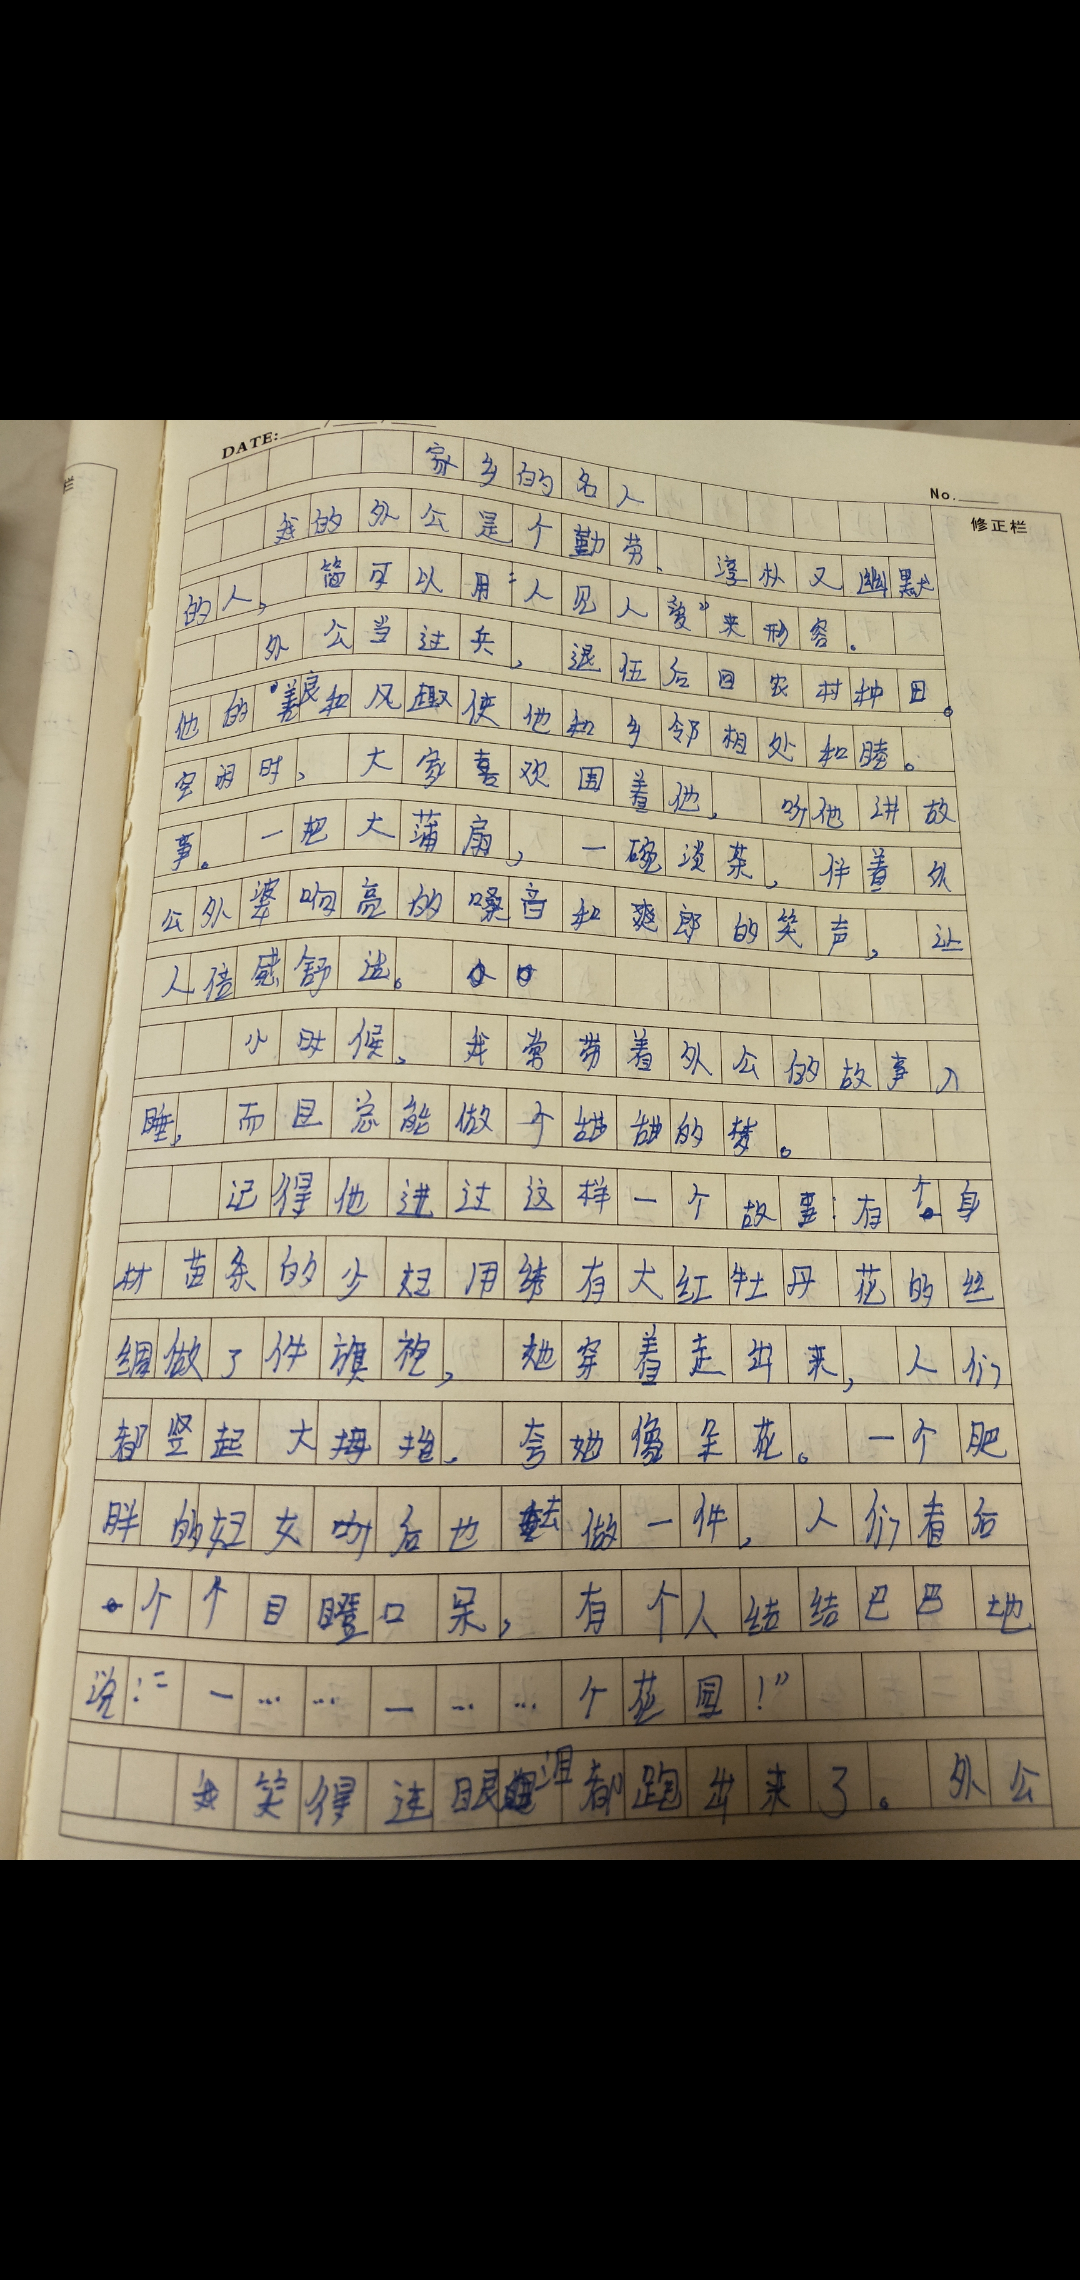 DATE: / /
No.
修正栏
家乡的名人
我的外公是个勤劳、淳朴又幽默
的人,简可以用"人见人爱"来形容。
外公当过兵,退伍后回农村种田。
他的善良和风趣使他和乡邻相处和睦。
空闲时,大家喜欢围着他,听他讲故
事。一把大蒲扇,一碗淡茶,伴着外
公外婆响亮的嗓音和爽郎的笑声,让
人倍感舒适。
小时候,我常带着外公的故事入
睡,而且总能做一个甜甜的梦。
记得他讲过这样一个故事:有个身
材苗条的少妇用绣有大红牡丹花的丝
绸做了件旗袍,她穿着走出来,人们
都竖起大拇指,夸她像朵花。一个肥
胖的妇女听后也去做一件,人们看后
个个目瞪口呆,有个人结结巴巴地
说:"一……一……个花园!"
我笑得连眼泪都跑出来了。外公